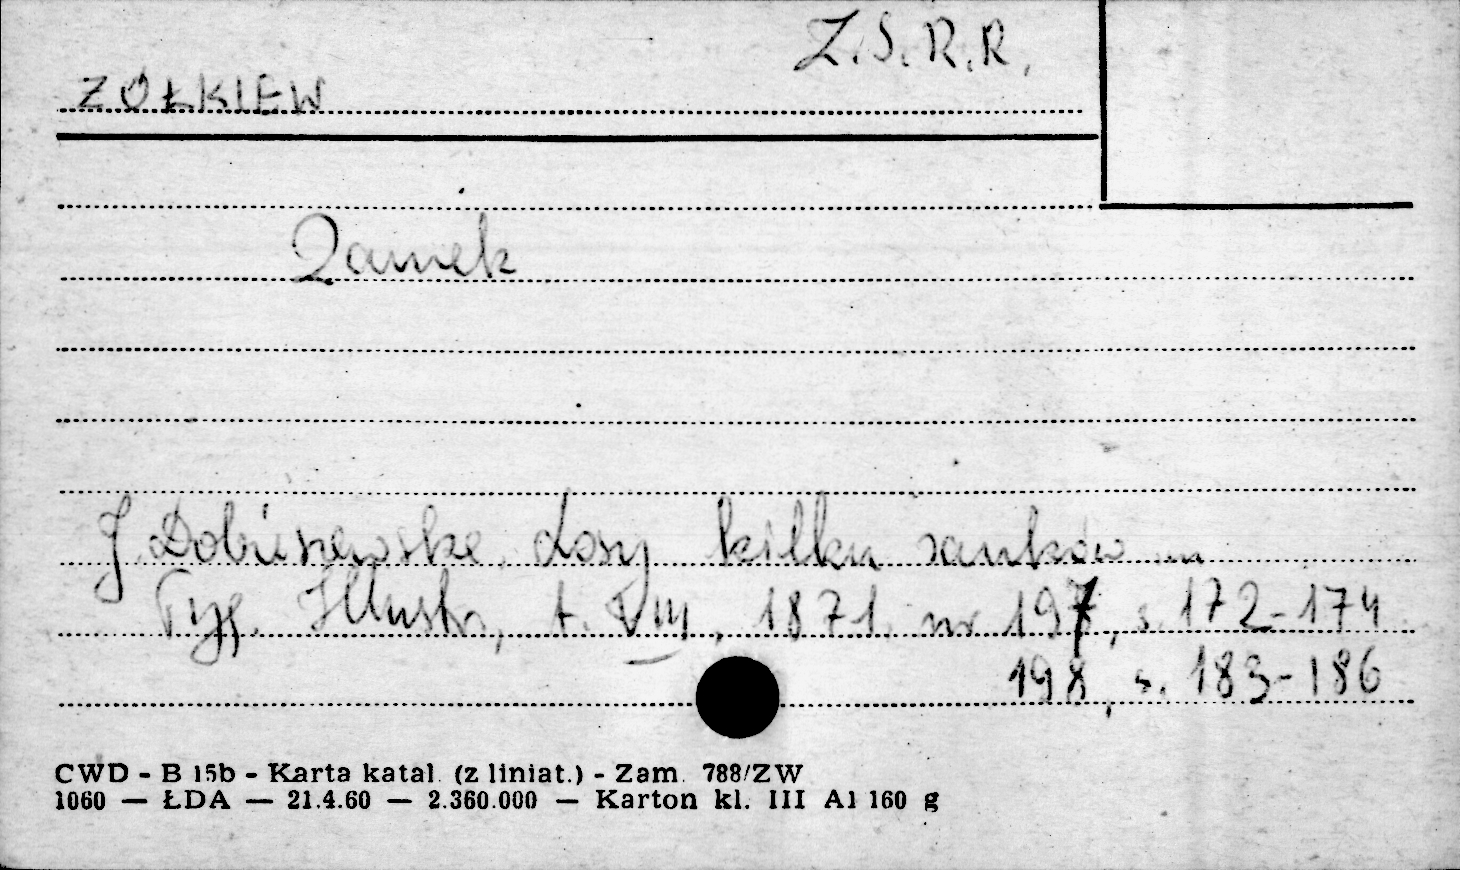 Z.S.R.R.
ŻÓŁKIEW
Zamek
J. Dobiszewska, Losy kilku zamków w
Tyg. Illustr., t. VIII, 1871, nr 197, s. 172-174
198, s. 183-186
CWD - B 15b - Karta katal. (z liniat.) - Zam. 788/ZW
1060 — ŁDA — 21.4.60 — 2.360.000 — Karton kl. III A1 160 g